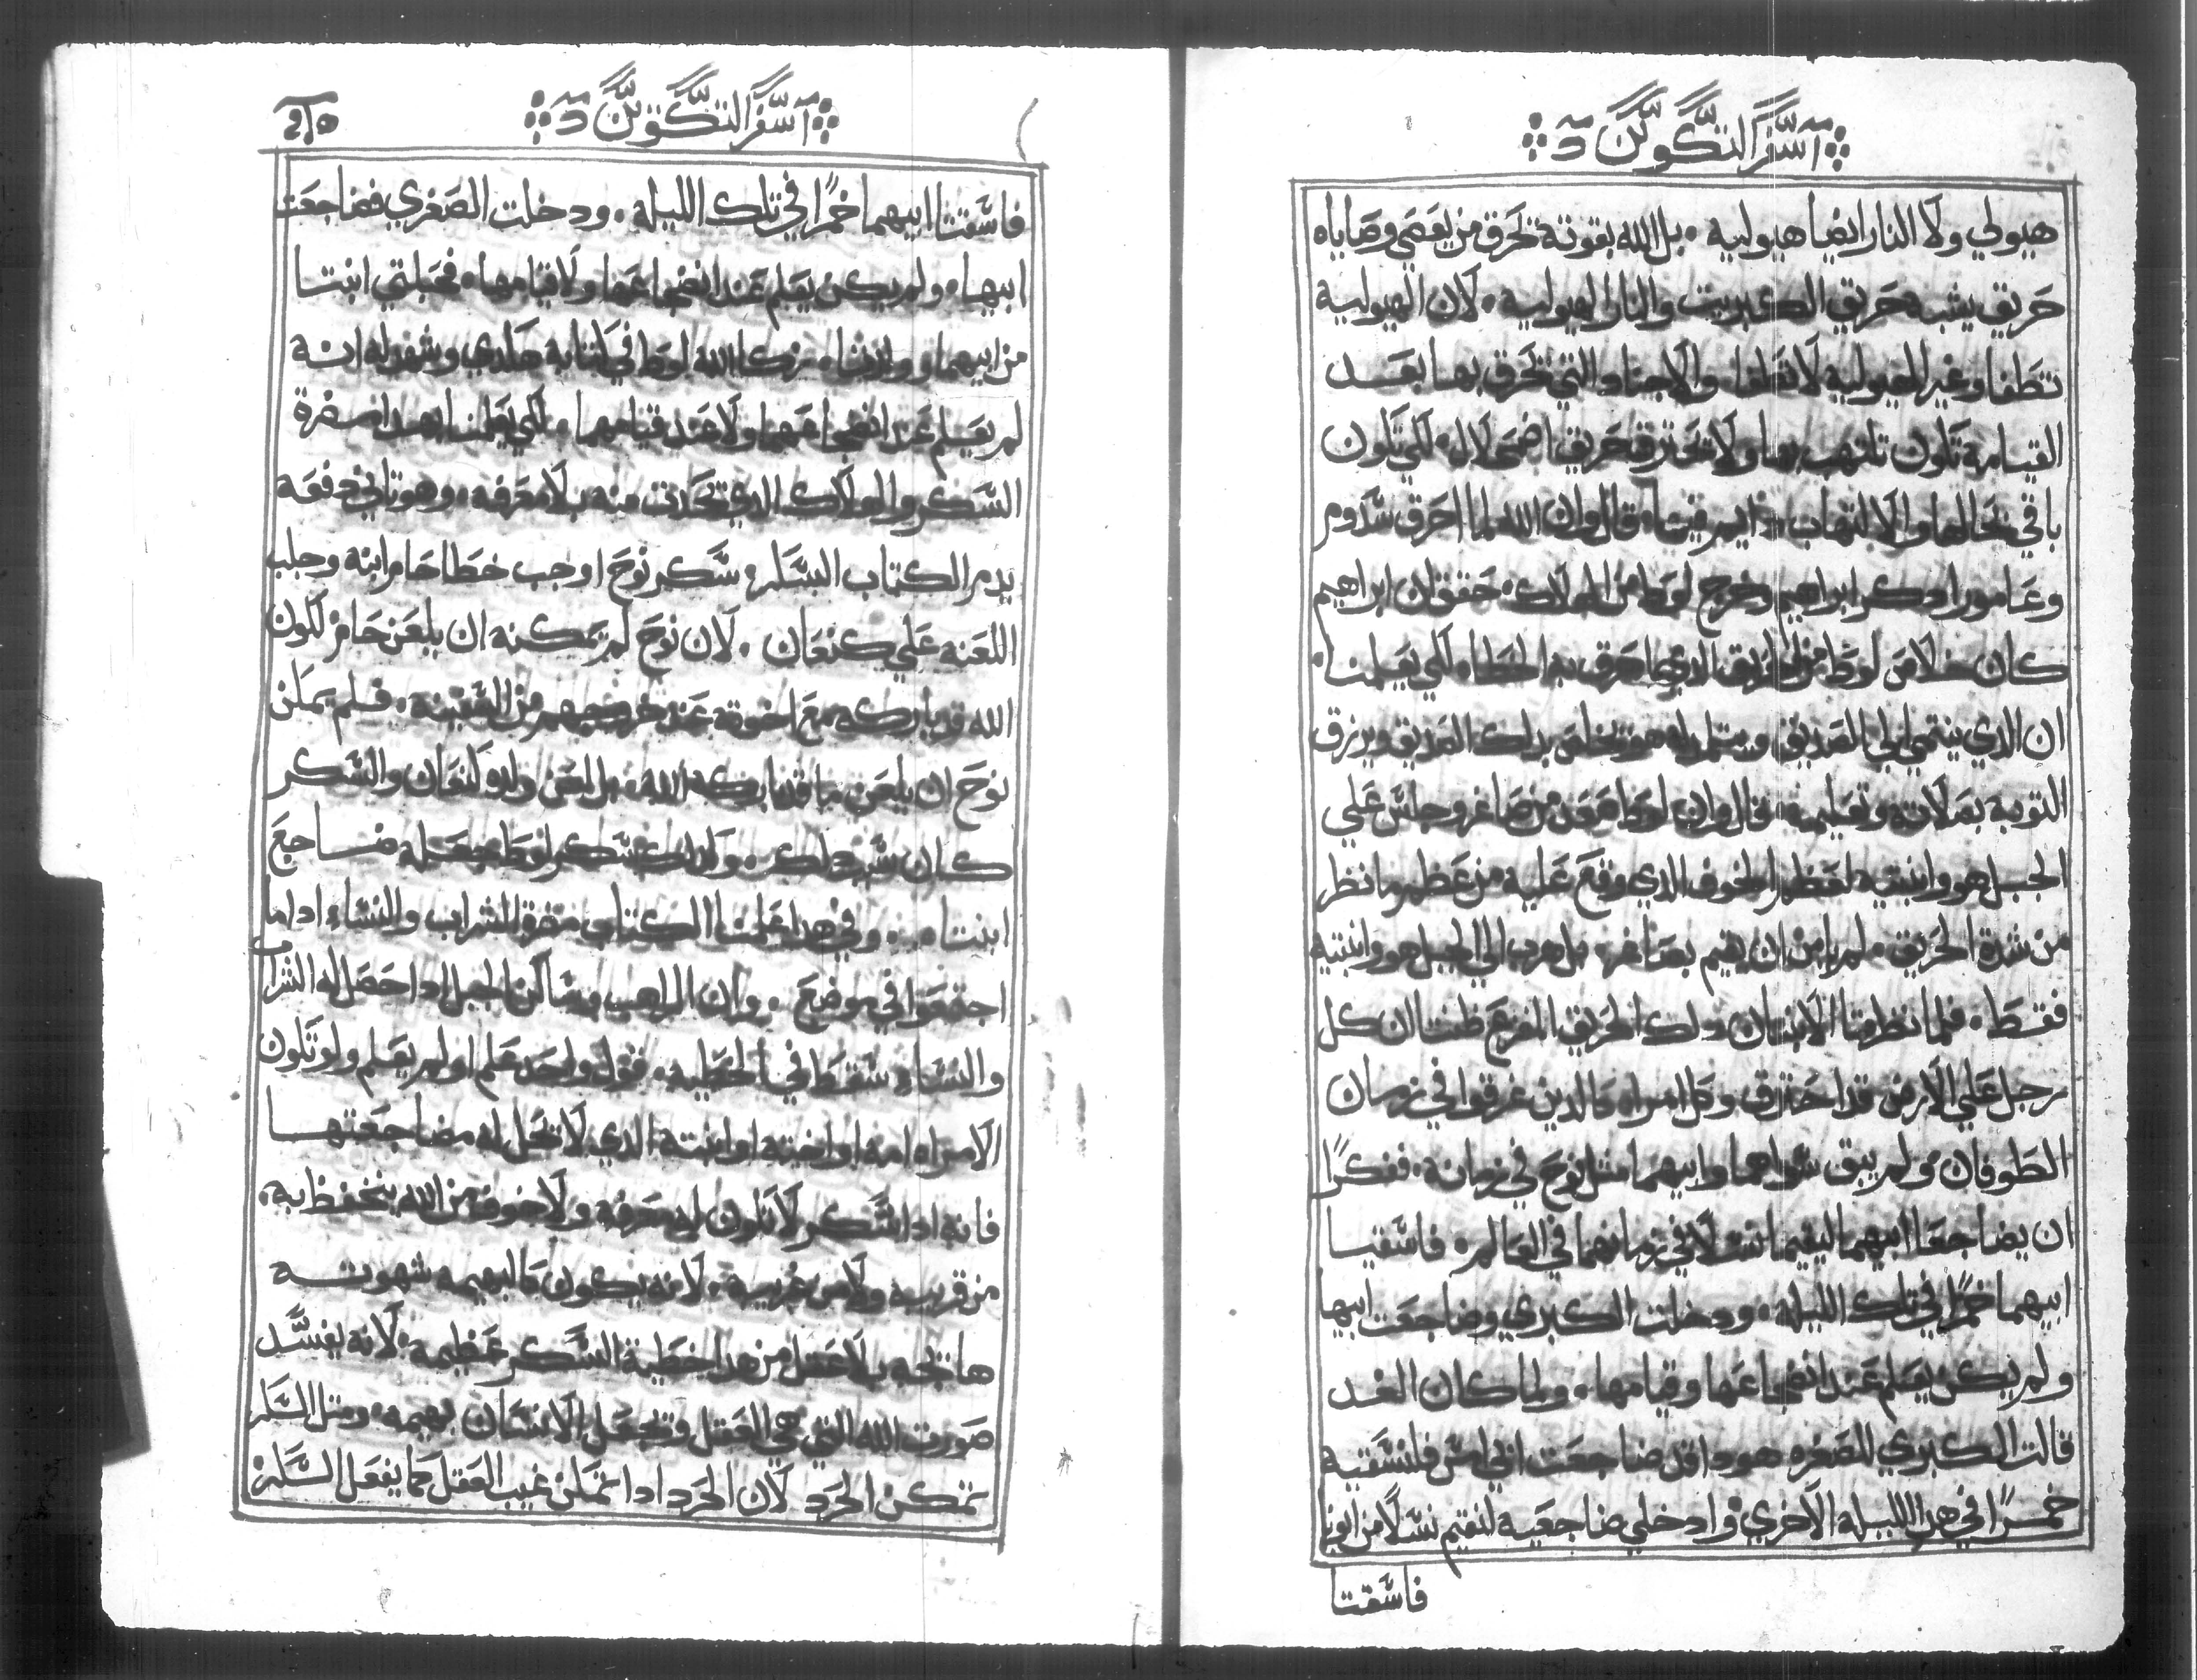 سفر التكوين
هيولي ولا النار ايضا هيولية . بل الله بقوته تحرق من يعصي وصاياه
حريق يشبه حريق الكبريت والنار الهيولية . لان الهيولية
تطفا وغير الهيولية لا تطفا . والاجساد التي تحرق بها بعد
القيامة تكون تلتهب بها ولا تحترق حريق اضمحلال . لكي تكون
باقي بحالها والالتهاب دايم فيها . قال وان الله لما احرق سدوم
وعامورا دكر ابراهيم وخرج لوط من الهلاك . حقق ان ابراهيم
كان خلاص لوط من الحريق الدي احرق به الخطاه لكي يعلمنا .
ان الدي ينتمي الي الصديق ويتلمد له هو يخلص بدلك الصديق ويرزق
التوبه بصلاته وتعليمه . قال وان لوط صعد من صاغر وجلس علي
الجبل هو وابنتيه لعظم الخوف الدي وقع عليه من عظم ما نظر
من شدة الحريق . لم يامن ان يقيم بصاغر . بل هرب الي الجبل هو وابنتيه
فقط . فلما نظرتا الابنتان دلك الحريق المفزع ظنتا ان كل
رجل علي الارض قد احترق وكل امراه كالدين غرقوا في زمان
الطوفان . ولم يبق سواهما وابيهما مثل نوح في زمانه . ففكرا
ان يضاجعا ابيهما ليقيما نسلا في زمانهما في العالم . فاسقيا
ابيهما خمرًا في تلك الليله . ودخلت الكبري وضاجعت ابيها
ولم يكن يعلم عند انضجاعها وقيامها . ولما كان الغد
قالت الكبري للصغره هودا قد ضاجعت ابي امس فلنسقيه
خمرًا في هده الليله الاخري وادخلي ضاجعيه لنقيم نسلا من ابونا
فاسقتا
سفر التكوين
فاسقتا ابيهما خمرًا في تلك الليله . ودخلت الصغري فضاجعت
ابيها . ولم يكن يعلم عند انضجاعها ولا قيامها . فحبلتي ابنتا
من ابيهما وولدتا . زكا الله لوط في كتابه هكدي وشهد له انه
لم يعلم عند انضجاعهما ولا عند قيامهما . لكي يعلمنا بهدا مضرة
السكر والهلاك الدي تحدت منه بلا معرفه . وهو تاني دفعه
يدم الكتاب السكر . سكر نوح اوجب خطا حام ابنه وجلب
اللعنه علي كنعان . لان نوح لم يمكنه ان يلعن حام لكون
الله قد باركه مع اخوته عند خروجهم من السفينه . فلم يمكن
نوح ان يلعن ما قد باركه الله . بل لعن ولده كنعان والسكر
كان سبب دلك . وكدلك سكر لوط جعله ضاجع
ابنتاه . وفي هدا علمنا الكتاب مضرة الشراب والنساء ادا ما
اجتمعوا في موضع . وان الراهب وساكن الجبل ادا حصل له الشراب
والنساء سقط في الخطيه . قول واحد علم او لم يعلم ولو تكون
الامراه امه او اخته او ابنته الدي لا تحل له مضاجعتها
فانه ادا سكر لا تكون له معرفه ولا خوف من الله يتحفظ به .
من قريبه ولا من غريبه . لانه يكون كالبهيمه شهوته
هايجه بلا عقل من هدا خطية السكر عظيمه . لانه يفسد
صورت الله التي هي العقل وتجعل الانسان بهيمه . ومتل السكر
تمكن الحرد لان الحرد ادا تمكن غيب العقل كما يفعل السكر